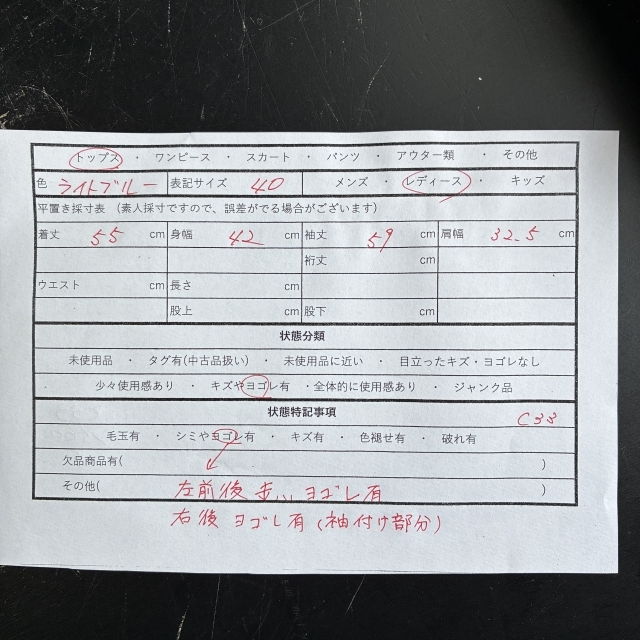 トップス ・ ワンピース ・ スカート ・ パンツ ・ アウター類 ・ その他
色 ライトブルー 表記サイズ 40 メンズ ・ レディース ・ キッズ
平置き採寸表 (素人採寸ですので、誤差がでる場合がございます)
着丈 55 cm 身幅 42 cm 袖丈 59 cm 肩幅 32.5 cm
裄丈 cm
ウエスト cm 長さ cm
股上 cm 股下 cm
状態分類
未使用品 ・ タグ有(中古品扱い) ・ 未使用品に近い ・ 目立ったキズ・ヨゴレなし
少々使用感あり ・ キズやヨゴレ有 ・全体的に使用感あり ・ ジャンク品
状態特記事項 C33
毛玉有 ・ シミやヨゴレ有 ・ キズ有 ・ 色褪せ有 ・ 破れ有
欠品商品有( )
その他( 左前後 ヨゴレ有 )
右後 ヨゴレ有 (袖付け部分)